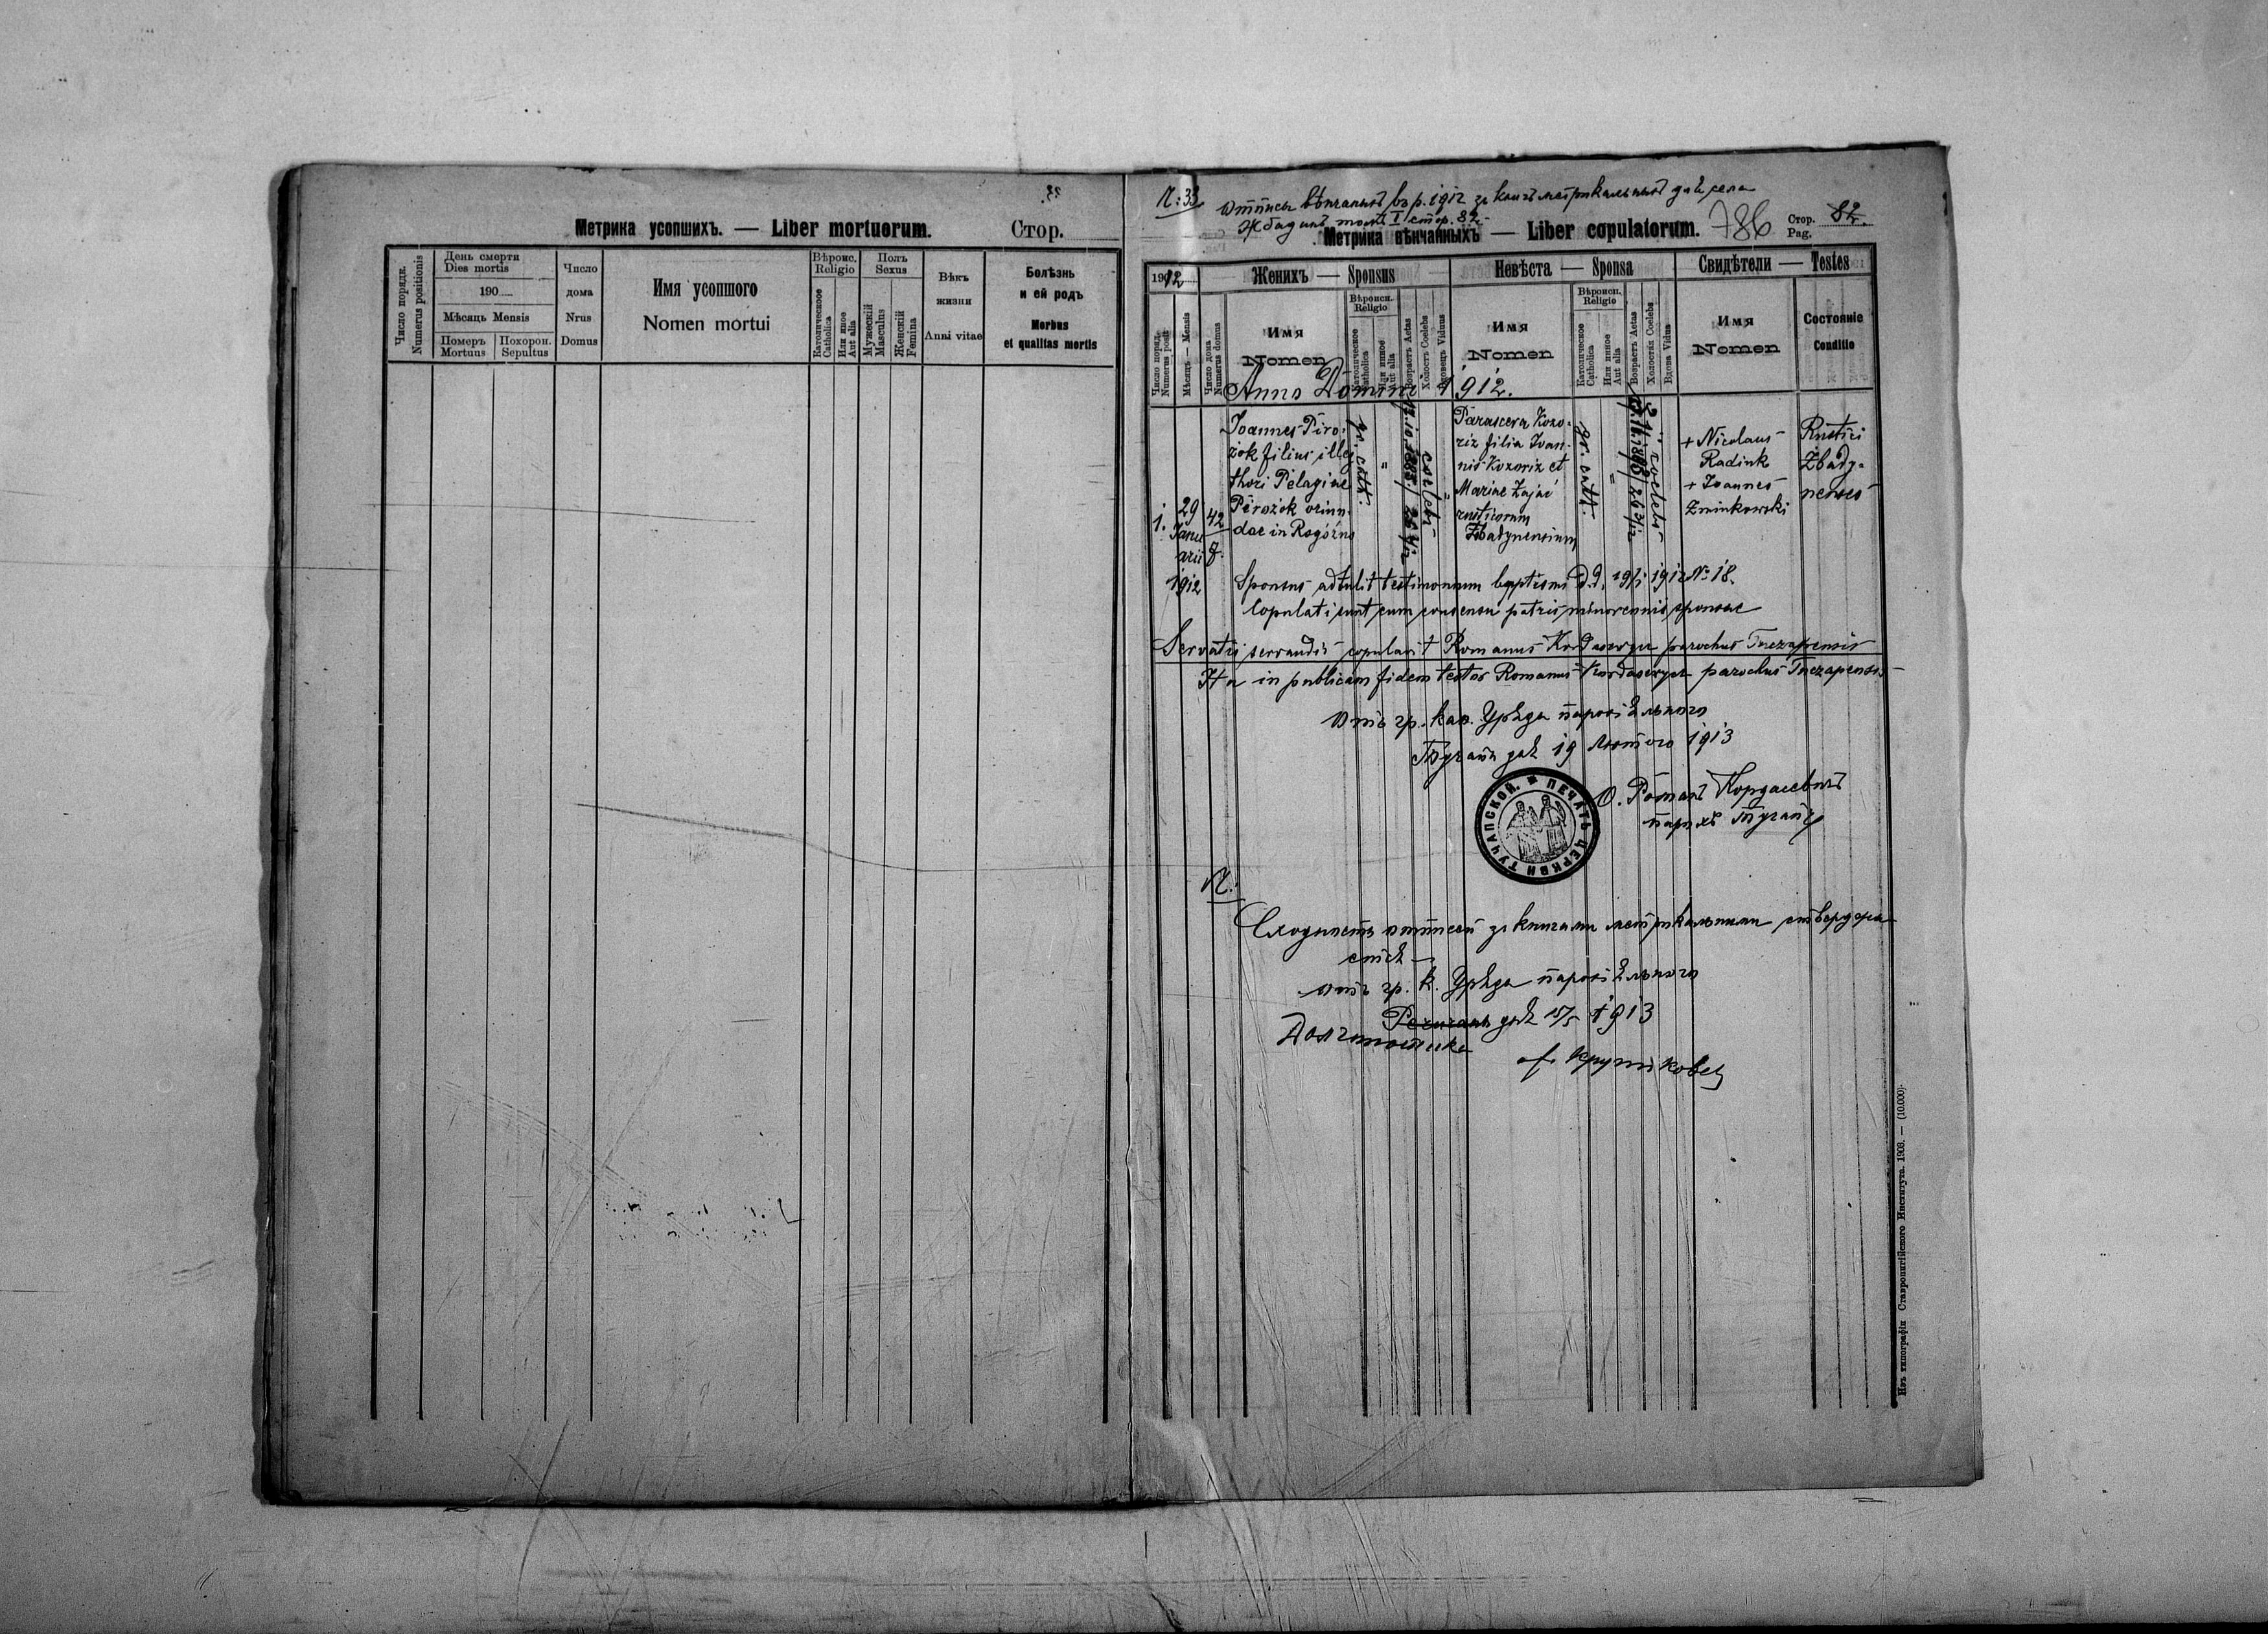 Метрика усопшихъ. — Liber mortuorum.
Стор.
Число порядк.
Numerus positionis
День смерти
Dies mortis
190
Мѣсяць Mensis
Померъ
Mortuus
Похорон.
Sepultus
Число
дома
Nrus
Domus
Имя усопшого
Nomen mortui
Вѣроис.
Religio
Католическоое
Catholica
Или иное
Aut alia
Полъ
Sexus
Мужескій
Masculus
Женскій
Femina
Вѣкъ
жизни
Anni vitae
Болѣзнь
и ей родъ
Morbus
et qualitas mortis
N: 33
Метрика вѣнчанныхъ — Liber copulatorum.
786
Стор.
Pag.
82.
1912
Женихъ — Sponsus
Невѣста — Sponsa
Свидѣтели — Testes
Число поряд.
Numerus posit
Мѣсяць — Mensis
Число дома
Numerus domus
Имя
Nomen
Вѣроисп.
Religio
Католическое
Catholica
Или инное
Aut alia
Возрастъ Aetas
Холостъ Coelebs
Вдовецъ Viduus
Имя
Nomen
Вѣроисп.
Religio
Католическое
Catholica
Или инное
Aut alia
Возрастъ Aetas
Холостая Coelebs
Вдова Vidua
Имя
Nomen
Состояніе
Conditio
Anno Domini 1912.
1.
29
Janu
arii
1912
42
8.
Joannes Piro-
żok filius illeg.
thori Pelagiae
Pirożok oriun-
dae in Rogóżno
gr. cath.
coelebs
Parascera Kozo-
riz filia Ioan-
nis Kozoriz et
Mariae Zając
rusticorum
Żbadynensium
gr. cath.
coelebs
+ Nicolaus
Radink
+ Joannes
Zminkowski
Rustici
Żbady-
nenses
Sponsus adtulit testimonium baptismi d.d. 19/1 1912 No 18.
Copulati sunt cum consensu patris minorennis sponsae
Servatis servandis copulavit Romanus Kordasewycz parochus Tuczapensis
Ita in publicam fidem testor Romanus Kordasewycz parochus Tuczapensis
Отъ гр. кат. Урѣда парохіяльного
Тучапы дня 19 Лютого 1913
О. Романъ Кордасевичъ
парохъ Тучапъ
ПЕЧАТЬ ЦЕРКВИ ТУЧАПСКОЙ.
N:
Сходность отписи зъ книгами метрикальними стверджа
отъ гр. к. Урѣда парохіяльного
дня 15/5 1913
Изъ типографіи Ставропигійского Института. 1908. — (10.000).